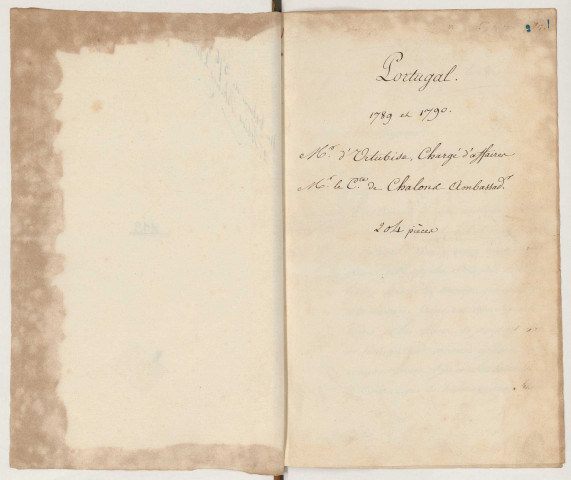 Portugal.
1789 et 1790.
Mr. d'Urtubise, Chargé d'affaires
Mr. le Cte. de Chalons Ambassadr.
204 pièces